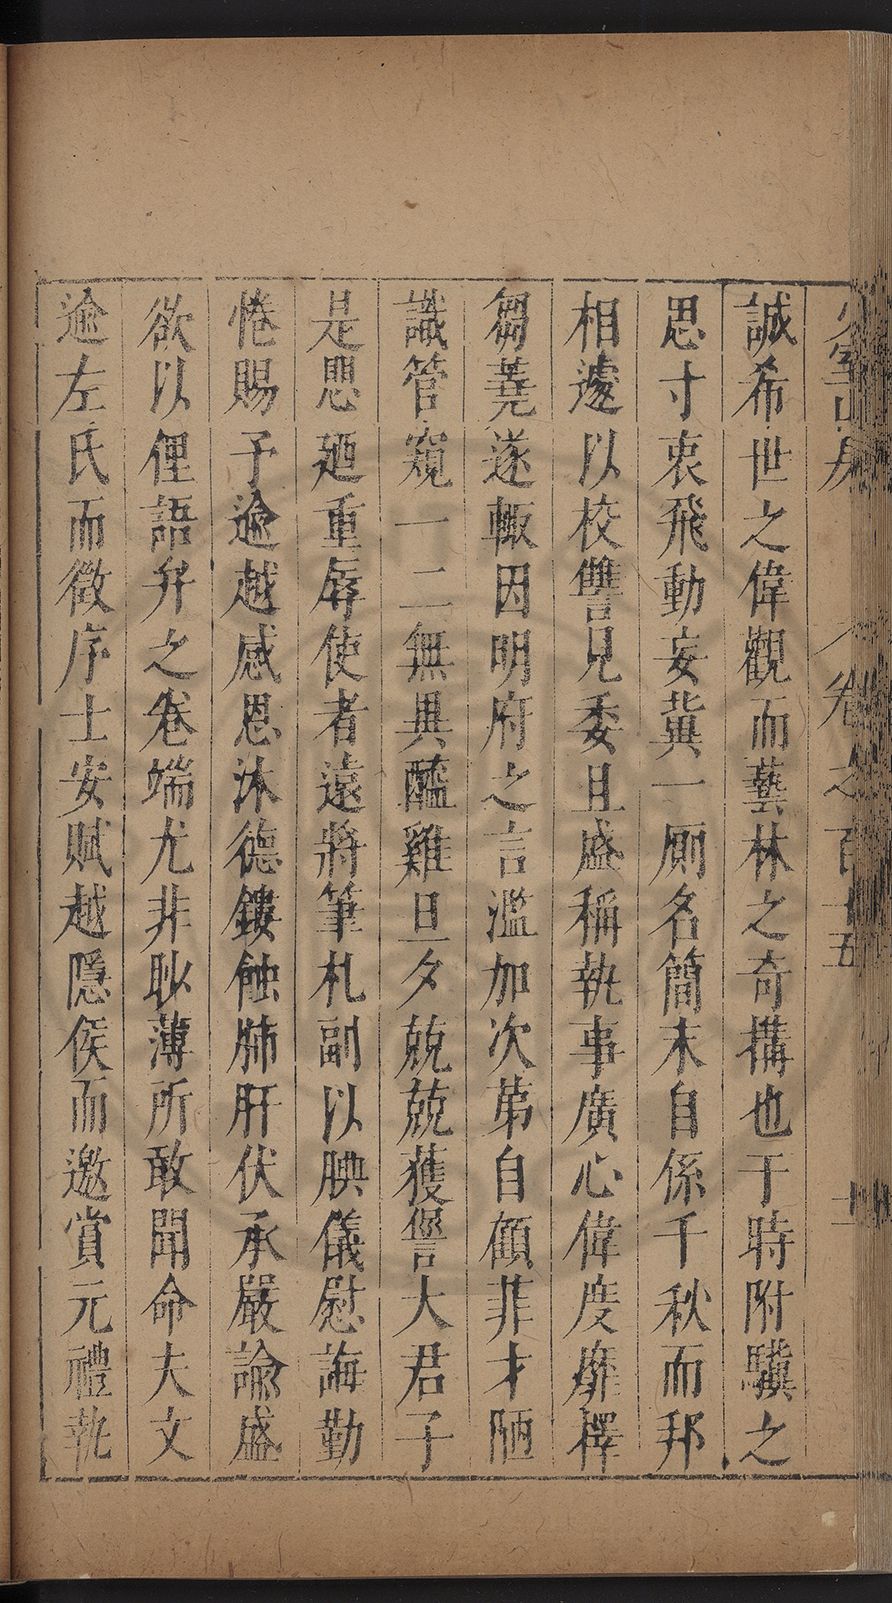 少室山房　卷之百十五　十一
誠希世之偉觀而藝林之奇搆也于時附驥之
思寸衷飛動妄冀一厠名簡末自係千秋而邦
相遽以校讐見委且盛稱執事廣心偉度靡擇
芻蕘遂輙因明府之言濫加次第自顧菲才陋
識管窺一二無異醯雞旦夕兢兢獲譽大君子
是思廼重辱使者遠將筆札副以腆儀慰誨勤
惓賜予逾越感恩沐德鏤蝕肺肝伏承嚴諭盛
欲以俚語弁之卷端尤非耿薄所敢聞命夫文
逾左氏而徵序士安賦越隱侯而邀賞元禮執